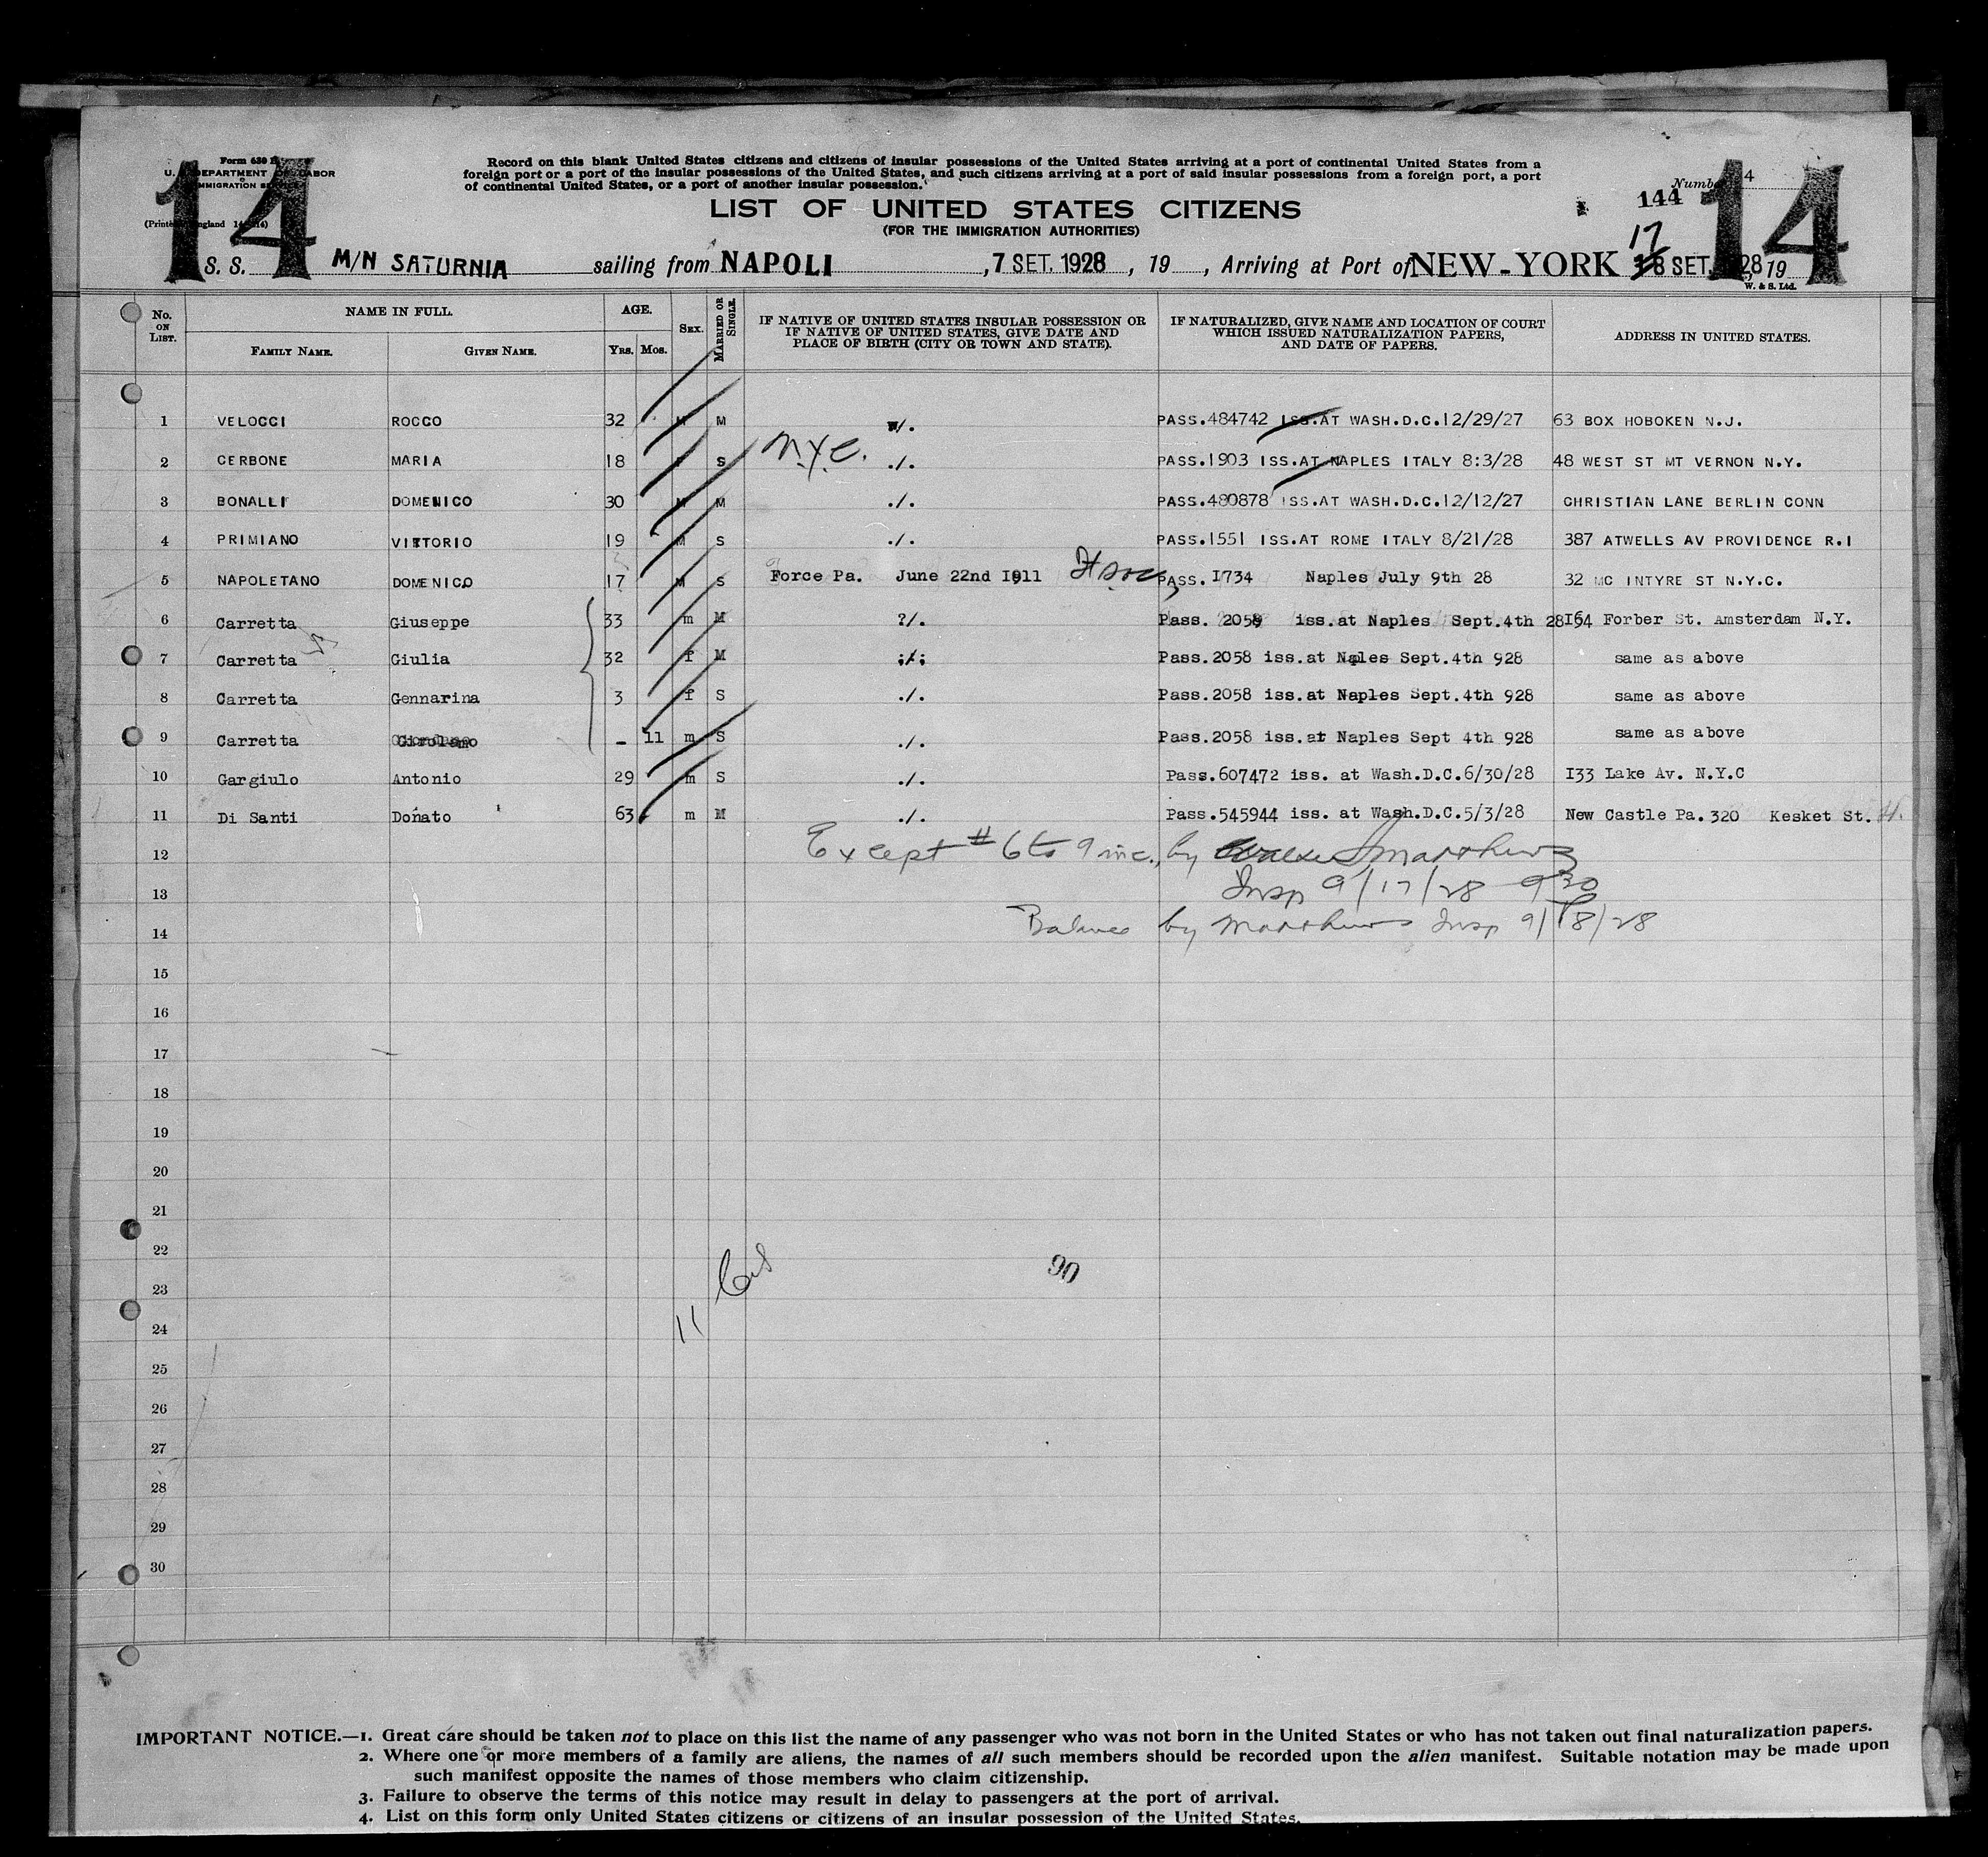 Form 630 B
U. S. DEPARTMENT OF LABOR
IMMIGRATION SERVICE
14
Record on this blank United States citizens and citizens of insular possessions of the United States arriving at a port of continental United States from a
foreign port or a port of the insular possessions of the United States, and such citizens arriving at a port of said insular possessions from a foreign port, a port
of continental United States, or a port of another insular possession.
Number 4
144
14
LIST OF UNITED STATES CITIZENS
(FOR THE IMMIGRATION AUTHORITIES)
S. S. M/N SATURNIA sailing from NAPOLI, 7 SET. 1928, 19 , Arriving at Port of NEW-YORK 17 18 SET. 1928 19
W. & S. Ltd.
No. ON LIST. NAME IN FULL. FAMILY NAME. GIVEN NAME. AGE. YRS. MOS. SEX. MARRIED OR SINGLE. IF NATIVE OF UNITED STATES INSULAR POSSESSION OR IF NATIVE OF UNITED STATES, GIVE DATE AND PLACE OF BIRTH (CITY OR TOWN AND STATE). IF NATURALIZED, GIVE NAME AND LOCATION OF COURT WHICH ISSUED NATURALIZATION PAPERS, AND DATE OF PAPERS. ADDRESS IN UNITED STATES.
1 VELOCCI ROCCO 32 M M ./. PASS.484742 ISS.AT WASH.D.C.12/29/27 63 BOX HOBOKEN N.J.
2 CERBONE MARIA 18 F S N.Y.C. ./. PASS.1903 ISS.AT NAPLES ITALY 8:3/28 48 WEST ST MT VERNON N.Y.
3 BONALLI DOMENICO 30 M M ./. PASS.480878 ISS.AT WASH.D.C.12/12/27 CHRISTIAN LANE BERLIN CONN
4 PRIMIANO VITTORIO 19 M S ./. PASS.1551 ISS.AT ROME ITALY 8/21/28 387 ATWELLS AV PROVIDENCE R.I
5 NAPOLETANO DOMENICO 17 M S Force Pa. June 22nd I911 PASS. I734 Naples July 9th 28 32 MC INTYRE ST N.Y.C.
6 Carretta Giuseppe 33 m M ?/. Pass. 2058 iss.at Naples Sept.4th 28 I64 Forber St. Amsterdam N.Y.
7 Carretta Giulia 32 f M ./. Pass.2058 iss.at Naples Sept.4th 928 same as above
8 Carretta Gennarina 3 f S ./. Pass.2058 iss.at Naples Sept.4th 928 same as above
9 Carretta Girolamo - 11 m S ./. Pass.2058 iss.at Naples Sept 4th 928 same as above
10 Gargiulo Antonio 29 m S ./. Pass.607472 iss. at Wash.D.C.6/30/28 I33 Lake Av. N.Y.C
11 Di Santi Donato 63 m M ./. Pass.545944 iss. at Wash.D.C.5/3/28 New Castle Pa. 320 Kesket St.
12 Except # 6 to 9 inc., by Matthews
13 Insp 9/17/28 930
14 Balance by Matthews Insp 9/18/28
15
16
17
18
19
20
21
22
90
23
24
11
25
26
27
28
29
30
IMPORTANT NOTICE.—1. Great care should be taken not to place on this list the name of any passenger who was not born in the United States or who has not taken out final naturalization papers.
2. Where one or more members of a family are aliens, the names of all such members should be recorded upon the alien manifest. Suitable notation may be made upon
such manifest opposite the names of those members who claim citizenship.
3. Failure to observe the terms of this notice may result in delay to passengers at the port of arrival.
4. List on this form only United States citizens or citizens of an insular possession of the United States.